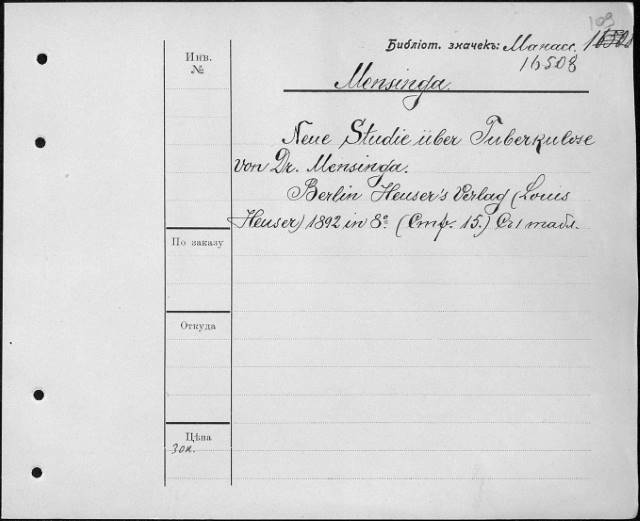 109
Библіот. значекъ: Манасс.
16508
Инв.
№
Mensinga.
Neue Studie über Tuberkulose
von Dr. Mensinga.
Berlin Heuser's Verlag (Louis
Heuser) 1892 in 8º. (Стр. 15.) Съ 1 табл.
По заказу
Откуда
Цѣна
30к.